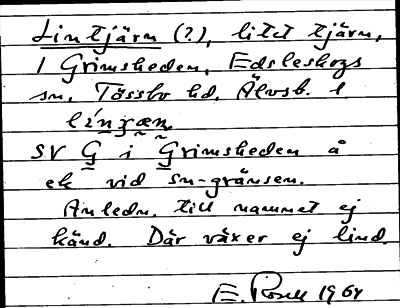 Lintjärn (?), litet tjärn,
1 Grimsheden, Edsleskogs
sn, Tössbo hd, Älvsb. l
SV G i Grimsheden å
ek vid sn-gränsen.
Anledn. till namnet ej
känd. Där växer ej lind.
E. 1964